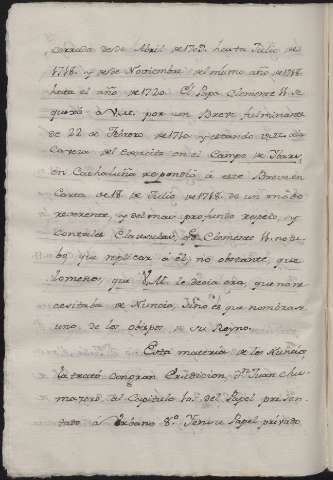 cerrada desde Abril de 1709. hasta Julio de
1718. y desde Noviembre del mismo año de 1718
hasta el año de 1720. El Papa Clemente 11. se
quexó à V.M. por un Breve fulminante
de 22 de Febrero de 1710 y estando V.M. à la
Caveza del exercito en el Campo de
en Cathaluña respondió à este Breve en
Carta de 18 de Julio de 1718. de un modo
reverente, y del mas profundo respeto, y
con tales Clausulas, que Clemente 11. no tu-
bo que replicar à él, no obstante, que
lo menos, que V.M. le decia era, que no ne-
cesitaba de Nuncio, sino es que nombrase
uno de los obispos de su Reyno.
Esta materia de los Nuncios
la trató con gran Erudicion, Dn. Juan Chu-
mazero al Capitulo 10. del Papel presen-
tado à Urbano 8º. Tengo Papel privado